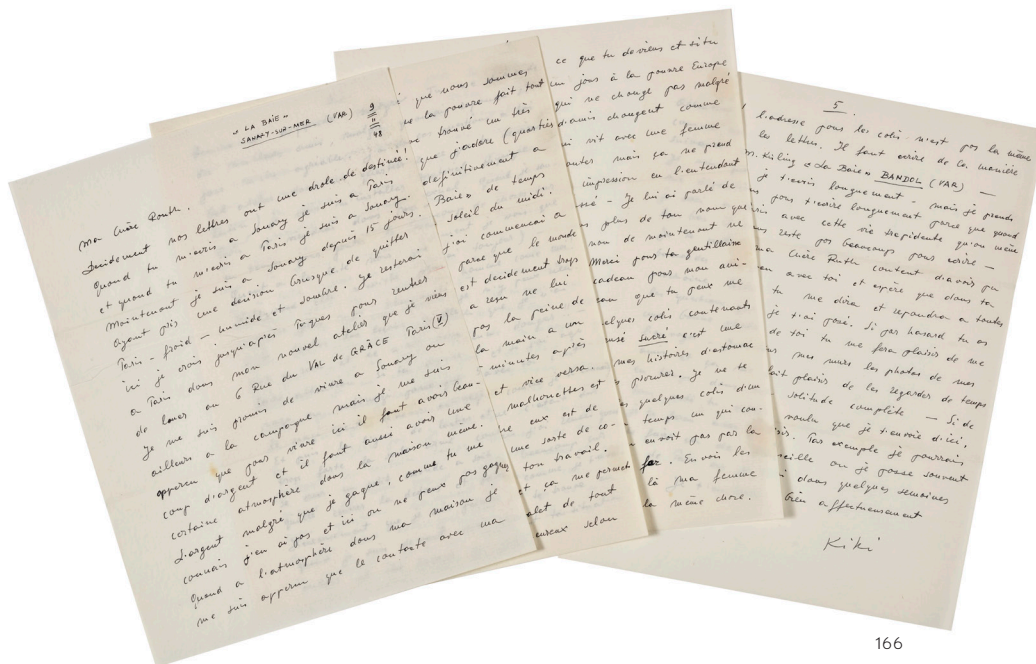 « LA BAÏE »
SANARY-SUR-MER (VAR)
9
11
48
Ma Chère Ruth.
Décidement nos lettres ont une drole de destinée!
Quand tu m'écris a Sanary je suis a Paris
et quand tu m'écris a Paris je suis a Sanary.
Maintenant je suis a Sanary depuis 15 jours.
ayant pris une décision brusque de quitter
Paris - froid - humide et sombre. Je resterai
ici je crois jusqu'après Pâques pour rentrer
a Paris dans mon nouvel atelier que je viens
de louer au 6 Rue du VAL de GRÂCE Paris (V)
Je me suis promis de vivre a Sanary ou
ailleurs a la campagne mais je me suis
apperçu que pour vivre ici il faut avoir beau-
coup d'argent et il faut aussi avoir une
certaine atmosphère dans la maison même.
L'argent malgré que je gagne, comme tu me
connais j'en ai pas et ici on ne peux pas gagner
Quand a l'atmosphère dans ma maison je
me suis apperçu que le contacte avec ma
que nous sommes
la pauvre fait tout
trouvé un très
que j'adore (quartier
définitivement a
Baïe » de temps
soleil du midi.
j'ai commencai a
parce que le monde
est decidement trop
a reçu ne lui
pas la peine de
la main a un
minutes après
et vice versa.
malhonettes et
eux est de
une sorte de co-
ton travail.
et ça me permet
valet de tout
heureux selon
ce que tu deviens et si tu
un jours à la pauvre Europe
qui ne change pas malgré
d'amis changent comme
vit avec une femme
mais ça ne prend
impression en l'entendant
Je lui ai parlé de
plus de ton nom que
nom de maintenant ne
Merci pour ta gentillaisse
cadeau pour mon ani-
que tu peux me
quelques colis contenants
sucré c'est une
mes histoires d'estomac
procurer. Je ne te
quelques colis d'un
temps en qui con-
envoit pas par la
for. En vois les
là ma femme
la même chose.
5.
l'adresse pour les colis n'est pas la même
les lettres. Il faut écrire de la manière
M. Kisling « La Baïe » BANDOL (VAR) —
je t'ecris longuement - mais je prends
pour t'ecrire longuement parce que quand
avec cette vie trepidente qu'on mène
reste pas beaucoup pour ecrire —
ma Chère Ruth content d'avois pu
avec toi et espère que dans ta
tu me dira et repondra a toutes
je t'ai posé. Si par hasard tu as
de toi tu me fera plaisir de me
mes murs les photos de mes
fait plaisir de les regarder de temps
solitude complète — Si de
voulu que je t'envoie d'ici,
Par exemple je pourrais
ou je passe souvent
dans quelques semaines
bien affectueusement
Kiki
166